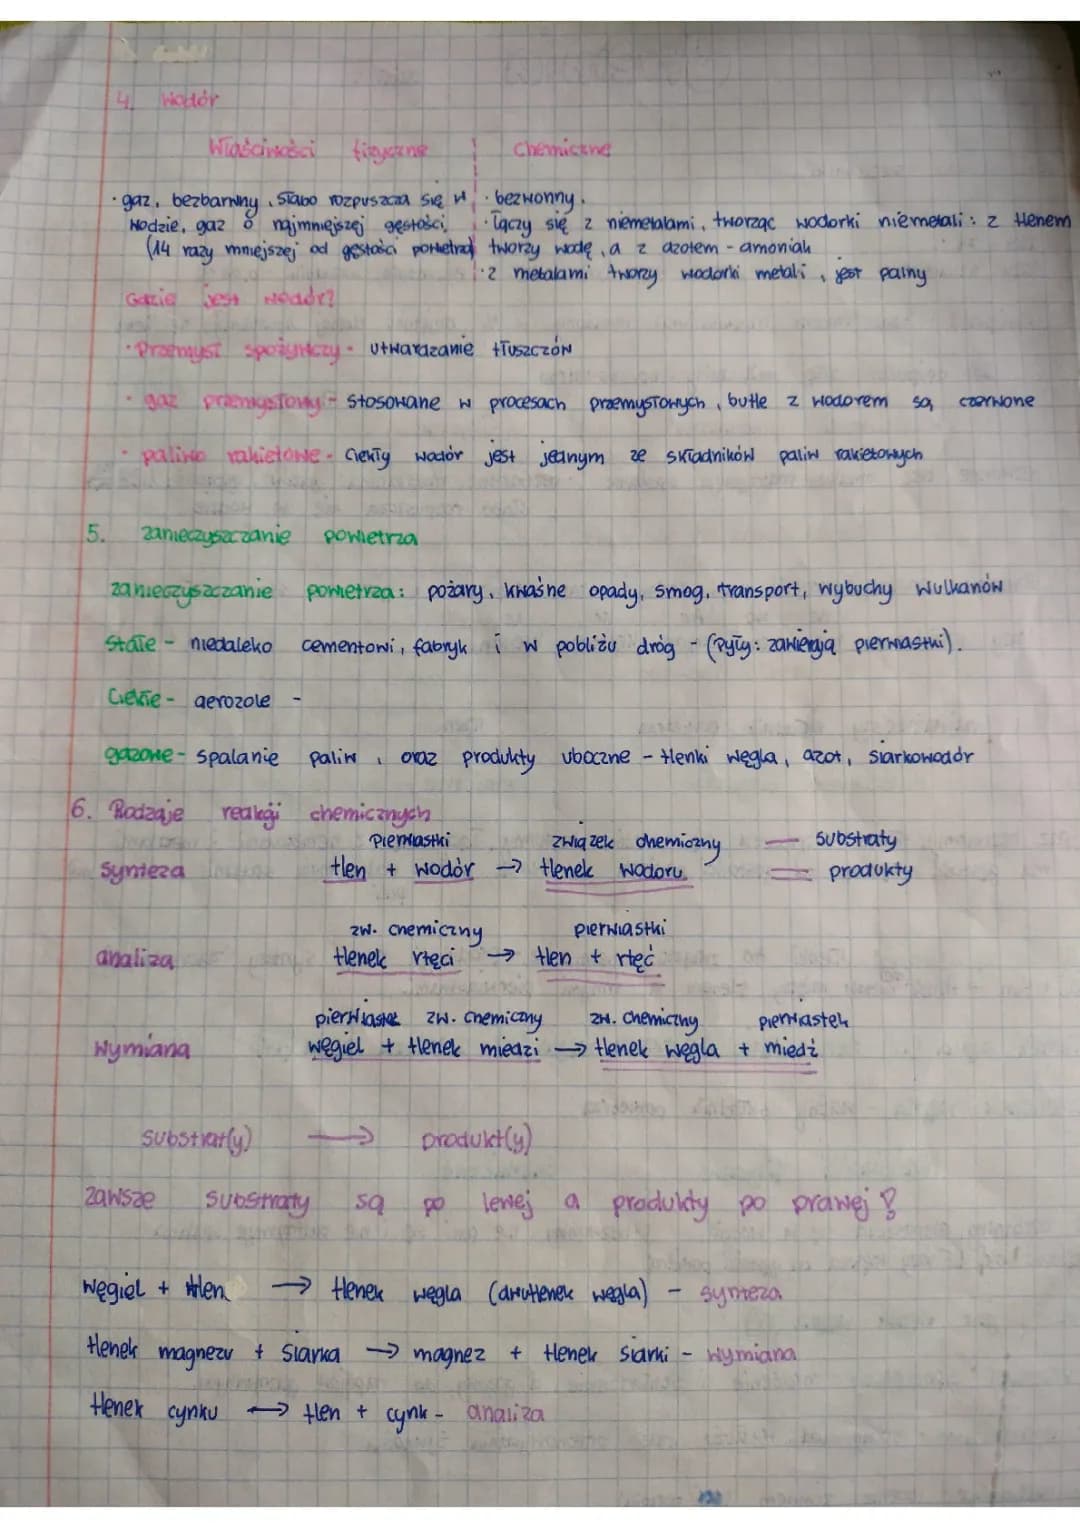 4. Wodór
Właściwości fizyczne
Chemiczne
· gaz, bezbarwny, słabo rozpuszcza się w
wodzie, gaz o najmniejszej gęstości
(14 razy mniejszej od gęstości powietrza)
· bezwonny.
· łączy się z niemetalami, tworząc wodorki niemetali: z tlenem
tworzy wodę, a z azotem - amoniak
· z metalami tworzy wodorki metali, jest palny
Gdzie jest wodór?
· Przemysł spożywczy - utwardzanie tłuszczów
· gaz przemysłowy - stosowane w procesach przemysłowych, butle z wodorem są czerwone
· paliwo rakietowe - ciekły wodór jest jednym ze składników paliw rakietowych
5. zanieczyszczanie powietrza
zanieczyszczanie powietrza: pożary, kwaśne opady, smog, transport, wybuchy wulkanów
Stałe - niedaleko cementowi, fabryk i w pobliżu dróg - (Pyły: zawierają pierwiastki).
Ciekłe - aerozole -
gazowe - spalanie paliw, oraz produkty uboczne - tlenki węgla, azot, siarkowodór
6. Rodzaje reakcji chemicznych
pierwiastki związek chemiczny — substraty
synteza tlen + wodór → tlenek wodoru = produkty
zw. chemiczny pierwiastki
analiza tlenek rtęci → tlen + rtęć
pierwiastek zw. chemiczny zw. chemiczny pierwiastek
wymiana węgiel + tlenek miedzi → tlenek węgla + miedź
substrat(y) → produkt(y)
zawsze substraty są po lewej a produkty po prawej!
węgiel + tlen → tlenek węgla (dwutlenek węgla) - synteza
tlenek magnezu + siarka → magnez + tlenek siarki - wymiana
tlenek cynku → tlen + cynk - analiza